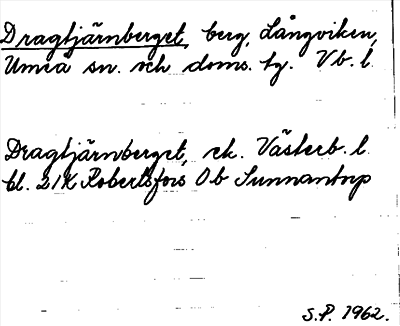 Dragtjärnberget, berg, Långviken,
Umeå sn. och doms. tg. Vb. l.
Dragtjärnberget, ek. Västerb. l.
bl. 21K Robertsfors Ob Sunnantorp
S.P. 1962.